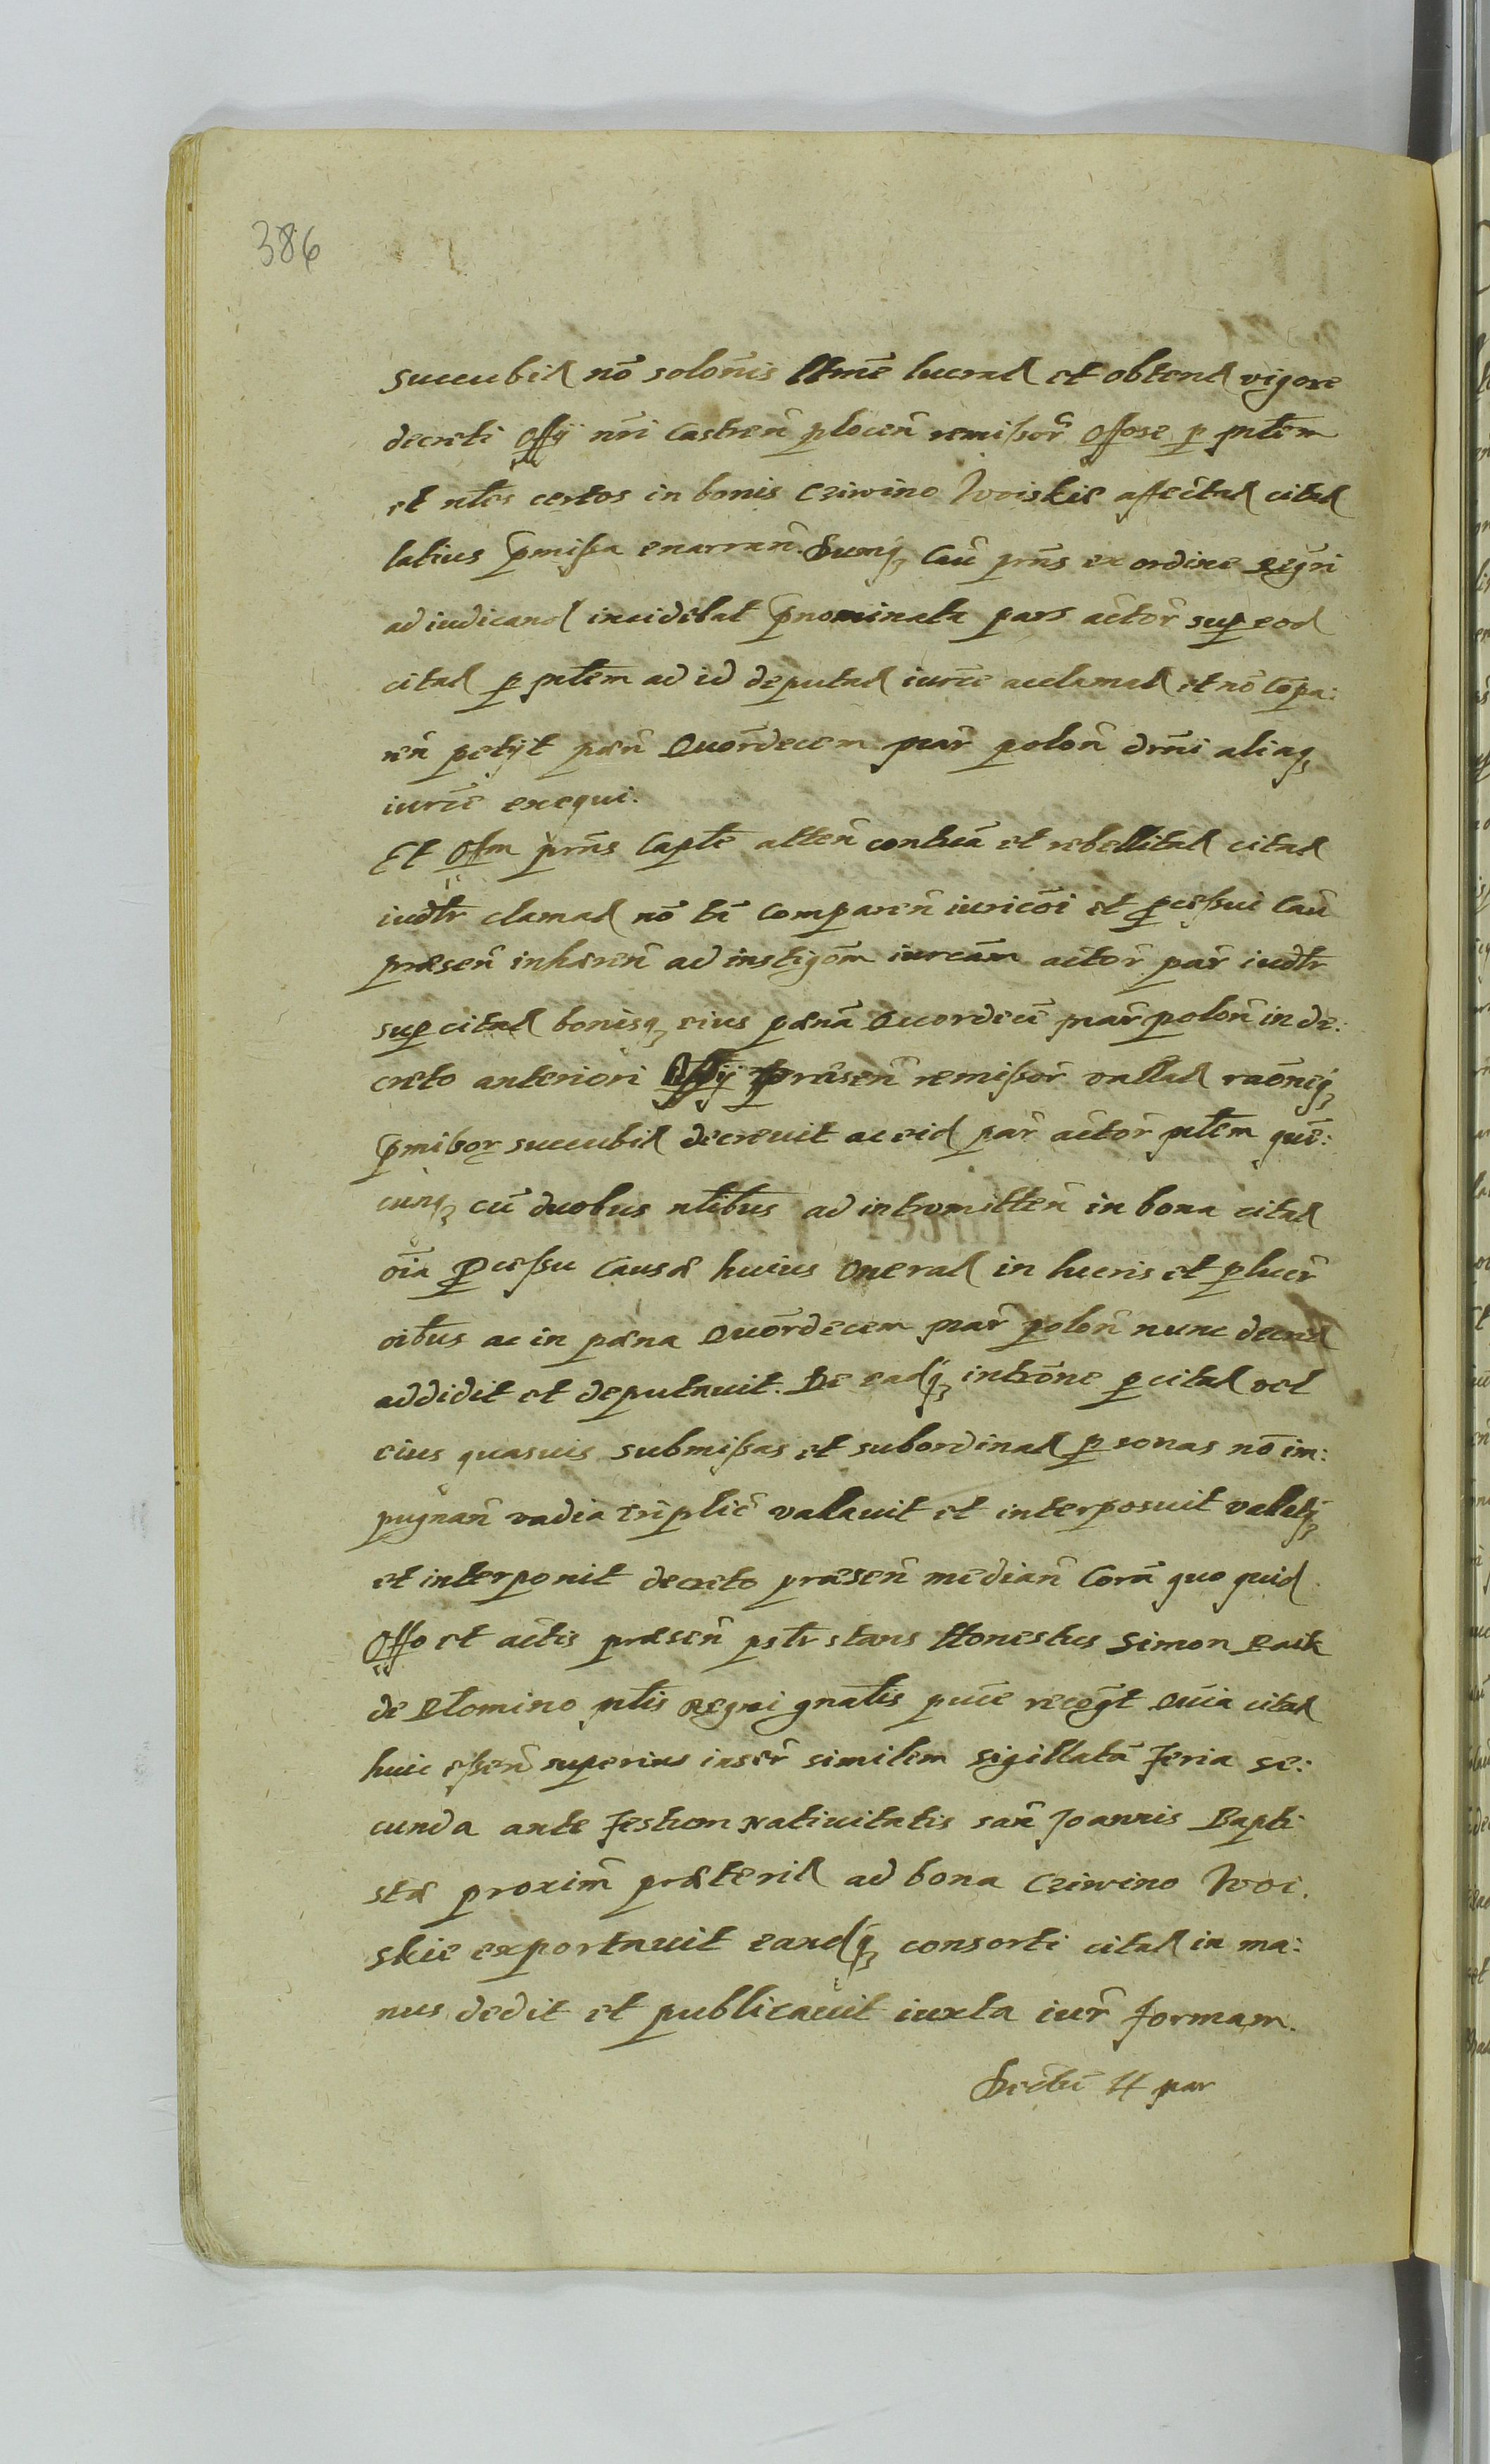 386
succubit nõ solonis ltmẽ lucrat et obtent vigore
decreti Offÿ nr̃i Castren̄ plocen̄ remissor̄ Offose p ptlem
et nt̃les certos in bonis Criwino Woiskie affectat citat
latius p̃missa enarran̄. Dumq̃ Cau p̃rns ex ordine regr̃i
ad iudicand incidebat p̃nominata pars actor̃ sup eod
citat p ptlem ad id deputat iurĩe acclamat et nõ cõpa:
ren̄ petÿt pæn̄ Quor̃decem mar̃ polon̄ dr̃ni aliaq̃
iurĩe exequi.
Et Offm p̃rns Captl̃e atten̄ contuã et rebellitat citat
iudlr̃ clamat nõ tñ comparen̄ iuricõi et pcessui Cau
præsen̄ inhæren̄ ad instigõm iurcam̃ actor̃ par̃ iudlr̃
sup citat bonisq̃ eius pænã Quordecẽ mar̃ polon̄ in de:
creto anteriori Offÿ præsen̄ remissor̃ vallat raõneq̃
p̃missor succubit decrevit ac eid par̃ actor̃ ptlem quẽ:
cunq̃ cũ duobus nt̃libus ad intromitten̄ in bona citat
oĩa pcessu Causæ huius Onerat in lucris et plucr̃
oĩbus ac in pæna Quor̃decem mar̃ polon̄ nunc decret
addidit et deputavit. De eadq̃ intrõne p citat vel
eius quasuis submissas et subordinat p sonas nõ im:
pugnan̄ vadia triplic̃ vallavit et interposuit vallatq̃
et interponit decreto præsen̄ median̄ Corã quo quid
Offo et actis præsen̄ pstr̃ stans Honestus Simon Raik
de Rlomino ptlis Regni gnal̃is pũce recogt̃ Quia citat
huic essen̄ superius inser̃ similem sigillatã Feria se:
cunda ante Festum Nativitatis san̄ Joannis Bapti
stæ proxim̃ præterit ad bona Criwino Woi.
skie exportavit eandq̃ consorti citat in ma:
nus dedit et publicavit iuxta iur̃ formam.
Decretũ H par